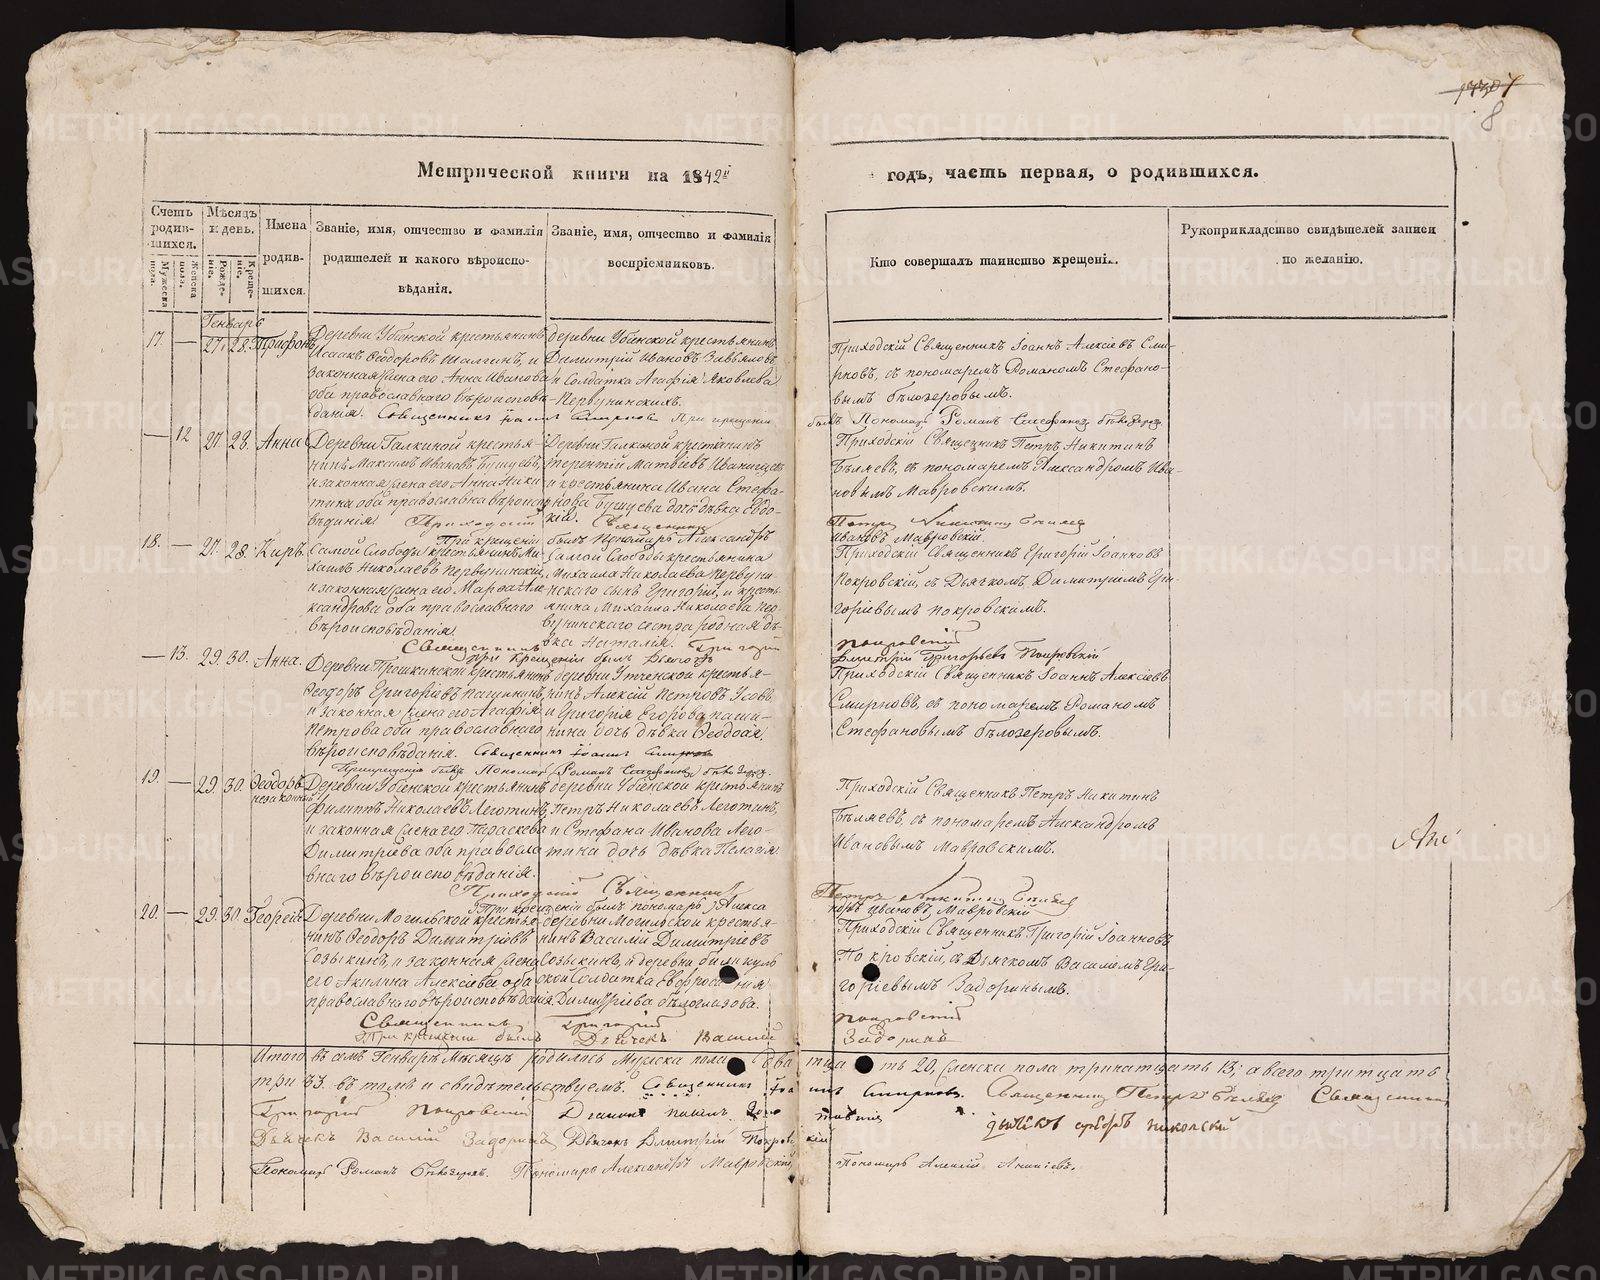 8
Метрической книги на 1842й годъ, часть первая, о родившихся.
Счетъ родив-шихся.
Мужеска пола.
Женска пола.
Мѣсяцъ и день.
Рожде-нія.
Креще-нія.
Имена родив-шихся.
Званіе, имя, отчество и фамилія
родителей и какого вѣроиспо-
вѣданія.
Званіе, имя, отчество и фамилія
воспріемниковъ.
Кто совершалъ таинство крещенія.
Рукоприкладство свидѣтелей записи
по желанію.
Генварь
17. — 27. 28. Трифонъ
Деревни Убиенской крестьянинъ
Исаакъ Ѳеодоровъ Шалгинъ, и
законная жена его Анна Иванова
оба православнаго вѣроиспов-
данія. Священникъ Іоаннъ Смирновъ
деревни Убиенской крестьянинъ
Димитрій Ивановъ Завьяловъ
и Солдатка Агафія Яковлева
Первунинскихъ.
При крещеніи
Приходскій Священникъ Іоаннъ Алексіевъ Сми-
рновъ, съ пономаремъ Романомъ Стефано-
вымъ бѣлозеровымъ.
былъ Пономарь Романъ Стефановъ бѣлозеровъ
— 12 27. 28. Анна
Деревни Галкиной крестья-
нинъ Максимъ Ивановъ Бушуевъ,
и законная жена его Анна Ники-
тина оба православна вѣроиспо-
вѣданія Приходскій
Деревни Галкиной крестьянинъ
терентій Матвіевъ Иванищевъ
и крестьянина Ивана Стефа-
нова Бушуева дочь дѣвка Евдо-
кія. Священникъ
Приходскій Священникъ Петръ Никитинъ
Бѣляевъ, съ пономаремъ Александромъ Ива-
новымъ Мавровскимъ.
Петръ Никитинъ Бѣляевъ
При крещеніи былъ Пономарь Александръ
Ивановъ Мавровскій.
18. — 27. 28. Киръ.
Самой Слободы крестьянинъ Ми-
хаилъ Николаевъ Первунинскій,
и законная жена его Марѳа Але-
ксандрова оба православнаго
вѣроисповѣданія.
Священникъ
Самой Слободы крестьянина
Михаила Николаева Первуни-
нскаго сынъ Григорій, и кресть-
янина Михаила Николаева Пер-
вунинскаго сестра родная дѣ-
вка Наталія. Григорій
Приходскій Священникъ Григорій Іоанновъ
Покровскій, съ Дьячкомъ Димитріемъ Гри-
горіевымъ покровскимъ.
покровскій
При крещеніи былъ Дьячекъ
Димитрій Григорьевъ Покровскій
— 13. 29. 30. Анна.
Деревни Прошкинской крестьянинъ
Ѳеодоръ Григоріевъ пашнинъ,
и законная жена его Агафія
Петрова оба православнаго
вѣроисповѣданія. Священникъ Іоаннъ Смирновъ
деревни Утченской крестья-
нинъ Алексій Петровъ Усовъ
и Григорія Егорова паши-
нина дочь дѣвка Ѳеодося,
Приходскій Священникъ Іоаннъ Алексіевъ
Смирновъ, съ пономаремъ Романомъ
Стефановымъ бѣлозеровымъ.
При крещеніи былъ Пономарь Романъ Стефановъ бѣлозеровъ.
19. — 29. 30. Ѳеодоръ
незаконный
Деревни Убиенской крестьянинъ
Филиппъ Николаевъ Леготинъ,
и законная жена его Параскева
Димитріева оба правосла-
внаго вѣроисповѣданія.
Приходскій Священникъ
деревни Убиенской крестьянинъ
Петръ Николаевъ Леготинъ,
и Стефана Иванова Лего-
тина дочь дѣвка Пелагія.
Приходскій Священникъ Петръ Никитинъ
Бѣляевъ, съ пономаремъ Александромъ
Ивановымъ Мавровскимъ.
Петръ Никитинъ Бѣляевъ
При крещеніи былъ пономарь Алекса
ндръ Ивановъ Мавровскій
20. — 29. 30. Георгій
Деревни Могильской крестья-
нинъ Ѳеодоръ Димитріевъ
Созыкинъ, и законная жена
его Акилина Алексіева оба
православнаго вѣроисповѣданія
Священникъ Григорій
При крещеніи былъ Дьячекъ Василій
деревни Могильской крестья-
нинъ Василій Димитріевъ
Созыкинъ, и деревни
ской Солдатка Евфросинія
Димитріева бѣлоглазова.
Приходскій Священникъ Григорій Іоанновъ
Покровскій, съ Дьячкомъ Василіемъ Гри-
горіевымъ Задоринымъ.
покровскій
Задоринъ
Итого въ семъ Генварѣ Мѣсяцѣ родилось Мужска пола двадцать 20, женска пола тринатцать 13; а всего тритцать
три 33. въ томъ и свидѣтельствуемъ. Священникъ Іоаннъ Смирновъ. Священникъ Петръ Бѣляевъ Священникъ
Григорій Покровскій Діаконъ
Дьячекъ Василій Задоринъ Дьячекъ Димитрій Покровскій
Пономарь Романъ Бѣлозеровъ. Пономарь Александръ Мавровскій, Пономарь Алексій